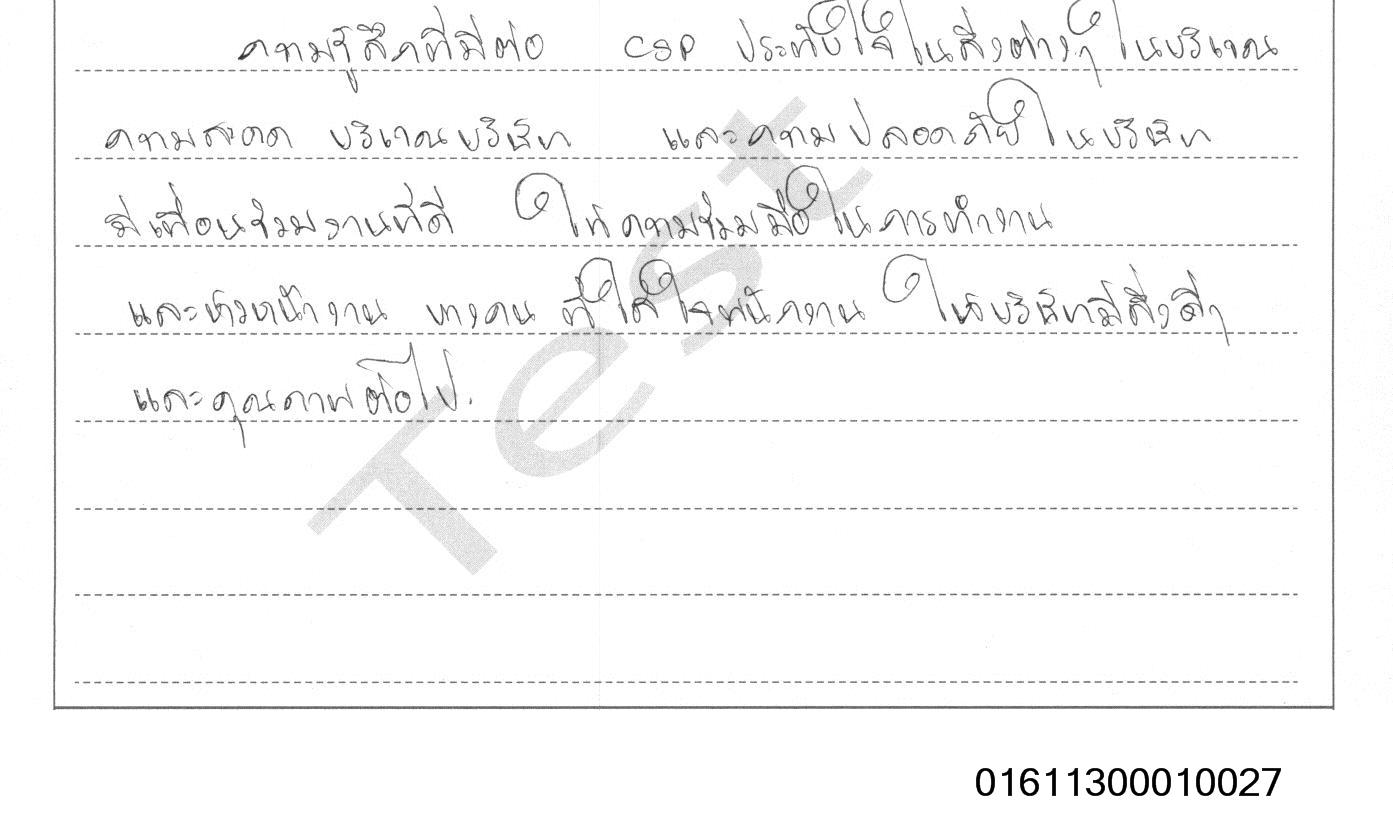 ความรู้สึกที่มีต่อ CSP ประทับใจในสิ่งต่างๆ ในบริเวณ
ความสะอาด บริเวณบริษัท และความปลอดภัยในบริษัท
มีเพื่อนร่วมงานที่ดี ให้ความร่วมมือในการทำงาน
และหัวหน้างาน บางคน ที่ใส่ใจพนักงาน ให้บริษัทมีสิ่งดีๆ
และคุณภาพต่อไป.
Test
01611300010027